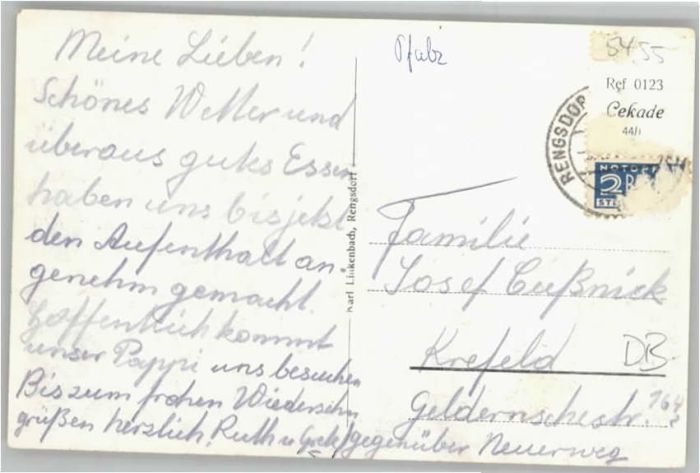 Meine Lieben!
Schönes Wetter und
überaus gutes Essen
haben uns bis jetzt
den Aufenthalt an
genehm gemacht.
Hoffentlich kommt
unser Pappi uns besuchen
Bis zum frohen Wiedersehn
grüßen herzlich, Ruth u. Grete
Karl Linkenbach, Rengsdorf
Pfalz
5455
Ref 0123
Cekade
44/1
RENGSDOR
NOTOPFER
2
ST
Familie
Josef Cußnick
Krefeld
DB
Geldernschestr. 164
gegenüber Neuerweg